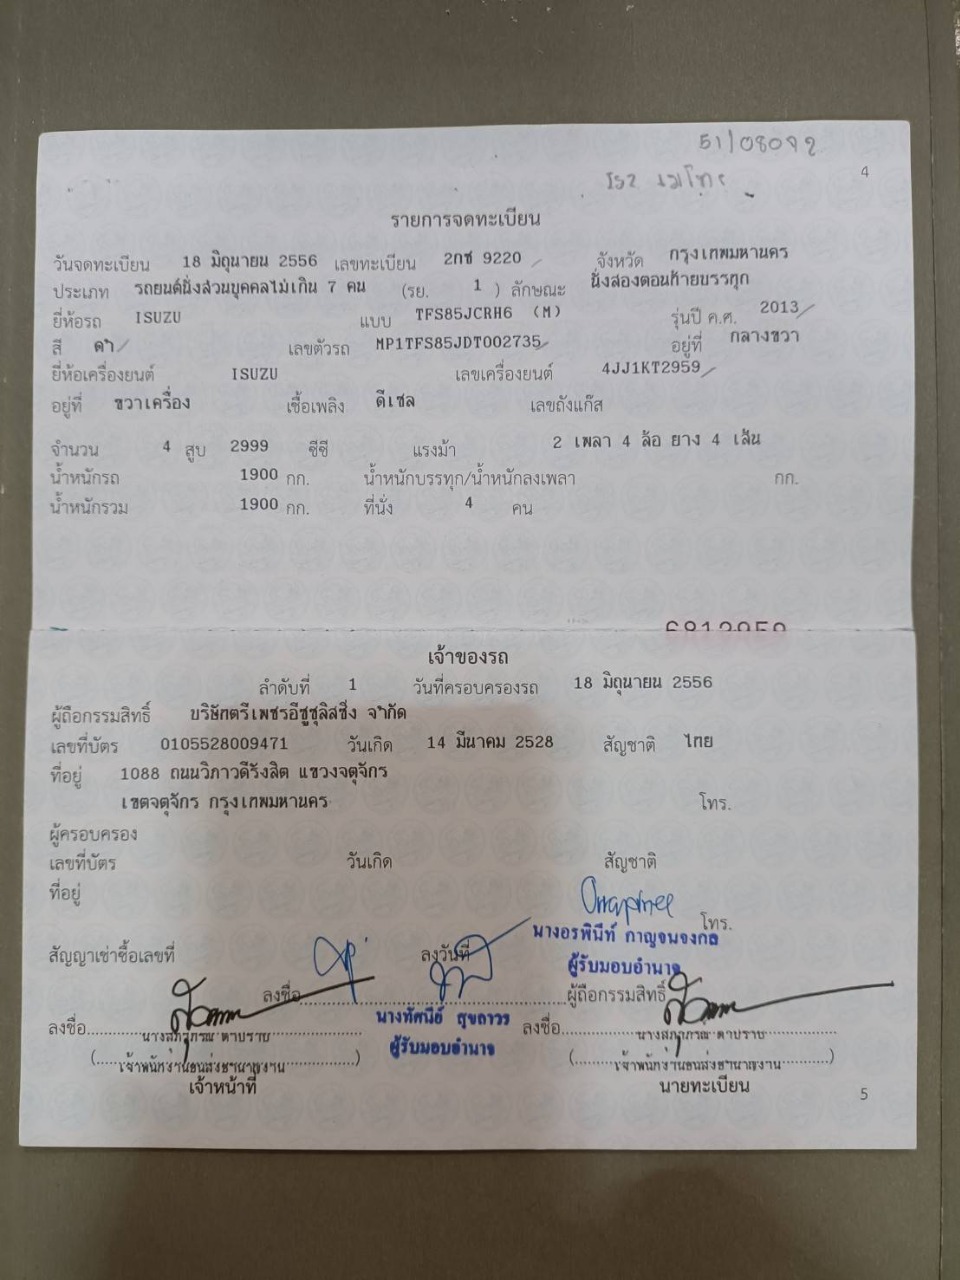 51/08092
4
รายการจดทะเบียน
วันจดทะเบียน 18 มิถุนายน 2556 เลขทะเบียน 2กช 9220 จังหวัด กรุงเทพมหานคร
ประเภท รถยนต์นั่งส่วนบุคคลไม่เกิน 7 คน (รย. 1 ) ลักษณะ นั่งสองตอนท้ายบรรทุก
ยี่ห้อรถ ISUZU แบบ TFS85JCRH6 (M) รุ่นปี ค.ศ. 2013
สี ดำ เลขตัวรถ MP1TFS85JDT002735 อยู่ที่ กลางขวา
ยี่ห้อเครื่องยนต์ ISUZU เลขเครื่องยนต์ 4JJ1KT2959
อยู่ที่ ขวาเครื่อง เชื้อเพลิง ดีเซล เลขถังแก๊ส
จำนวน 4 สูบ 2999 ซีซี แรงม้า 2 เพลา 4 ล้อ ยาง 4 เส้น
น้ำหนักรถ 1900 กก. น้ำหนักบรรทุก/น้ำหนักลงเพลา กก.
น้ำหนักรวม 1900 กก. ที่นั่ง 4 คน
เจ้าของรถ
ลำดับที่ 1 วันที่ครอบครองรถ 18 มิถุนายน 2556
ผู้ถือกรรมสิทธิ์ บริษัทตรีเพชรอีซูซุลิสซิ่ง จำกัด
เลขที่บัตร 0105528009471 วันเกิด 14 มีนาคม 2528 สัญชาติ ไทย
ที่อยู่ 1088 ถนนวิภาวดีรังสิต แขวงจตุจักร
เขตจตุจักร กรุงเทพมหานคร โทร.
ผู้ครอบครอง
เลขที่บัตร วันเกิด สัญชาติ
ที่อยู่ โทร.
นางอรพินีท์ กาญจนจงกล
สัญญาเช่าซื้อเลขที่ ลงวันที่
ผู้รับมอบอำนาจ
ลงชื่อ ผู้ถือกรรมสิทธิ์
นางทัศนีย์ สุขถาวร
ลงชื่อ ลงชื่อ
ผู้รับมอบอำนาจ
เจ้าพนักงานขนส่งชำนาญงาน เจ้าพนักงานขนส่งชำนาญงาน
เจ้าหน้าที่ นายทะเบียน
5